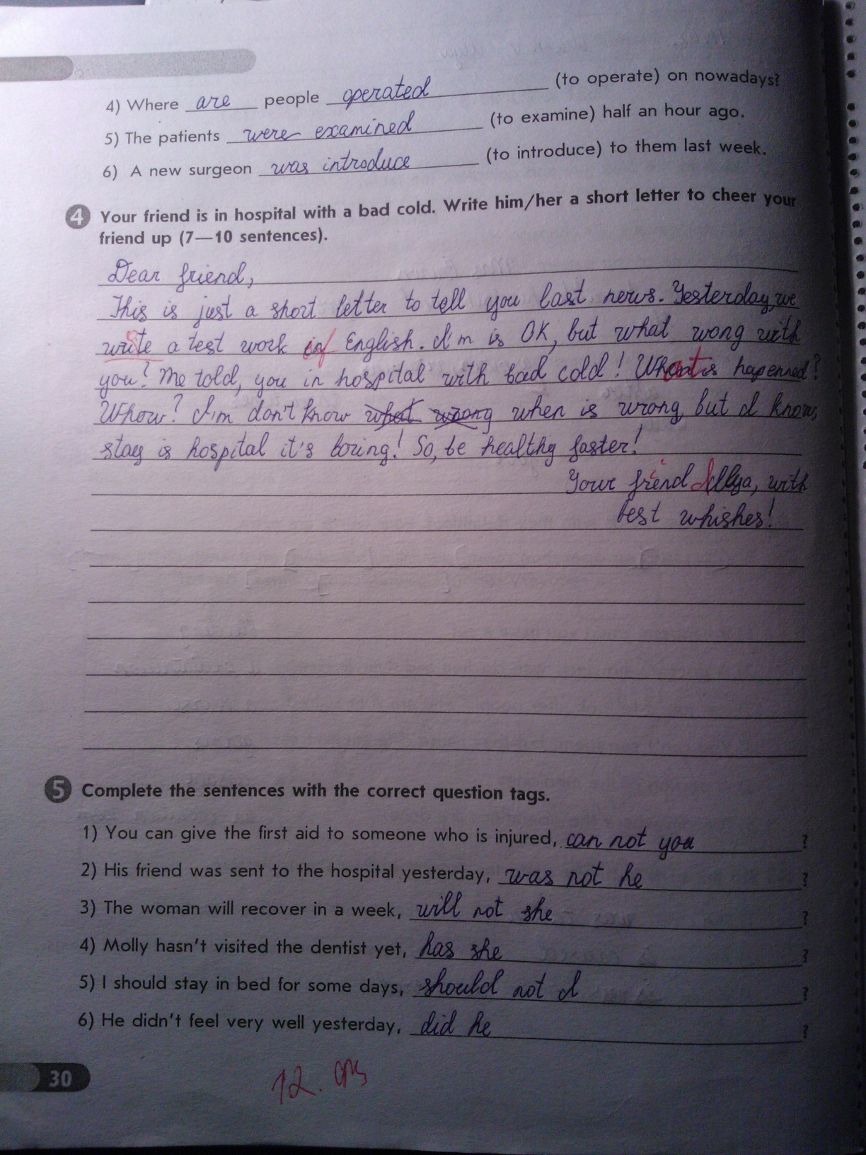 4) Where are people operated (to operate) on nowadays?
5) The patients were examined (to examine) half an hour ago.
6) A new surgeon was introduce (to introduce) to them last week.
4 Your friend is in hospital with a bad cold. Write him/her a short letter to cheer your
friend up (7—10 sentences).
Dear friend,
This is just a short letter to tell you last news. Yesterday, we
write a test work of English. I'm is OK, but what wong with
you? Me told, you in hospital with bad cold! What is hapenned?
Whow? I'm don't know what wrong when is wrong, but I know,
stay is hospital it's boring! So, be healthy faster!
Your friend Illya, with
best whishes!
5 Complete the sentences with the correct question tags.
1) You can give the first aid to someone who is injured, can not you ?
2) His friend was sent to the hospital yesterday, was not he ?
3) The woman will recover in a week, will not she ?
4) Molly hasn't visited the dentist yet, has she ?
5) I should stay in bed for some days, should not I ?
6) He didn't feel very well yesterday, did he ?
30
12.